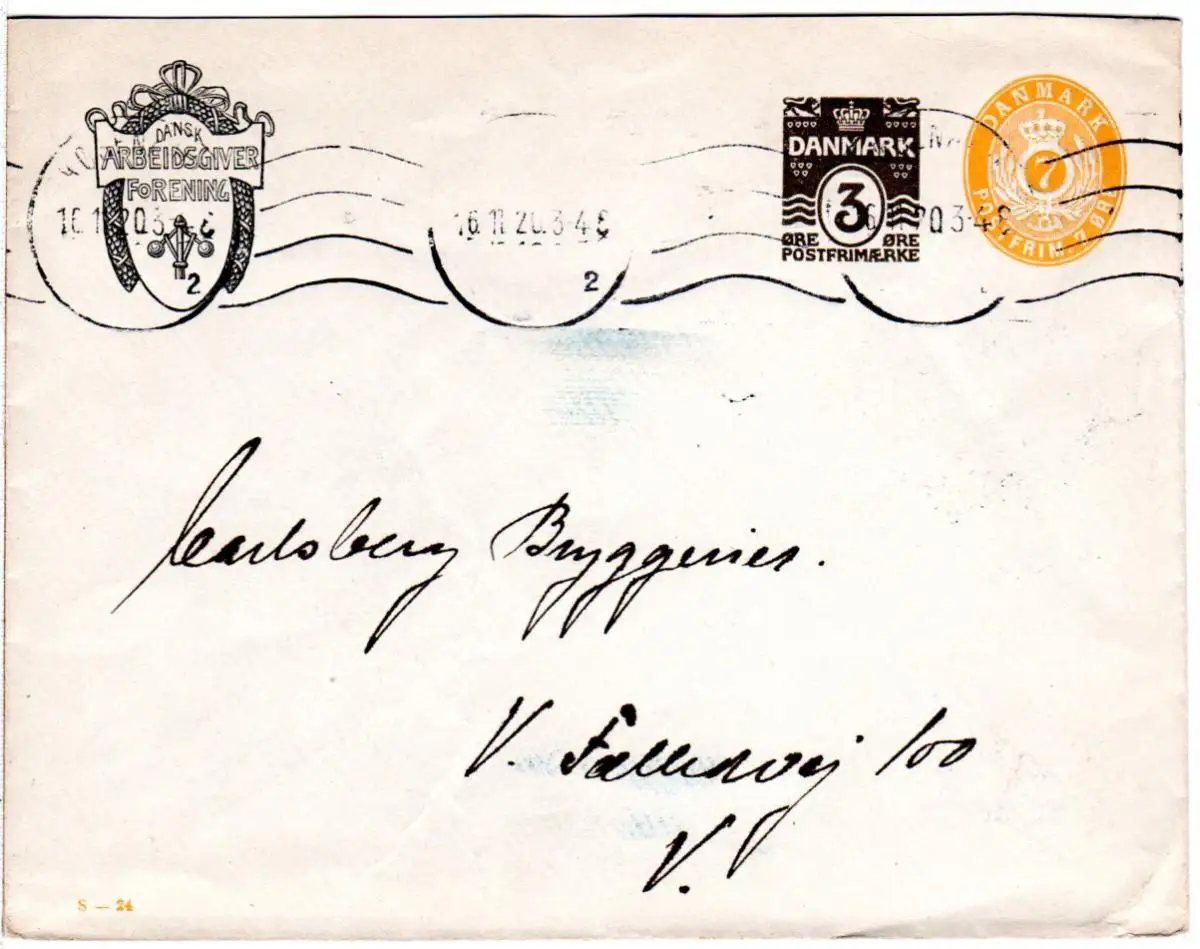 DANSK
ARBEJDSGIVER
FORENING
2
16 11 20 3-4 E
2
DANMARK
3
ØRE ØRE
POSTFRIMÆRKE
DANMARK
7
POSTFRIM. 7 ØRE
Carlsberg Bryggerier.
V. Fælledvej 100
V.
S — 24